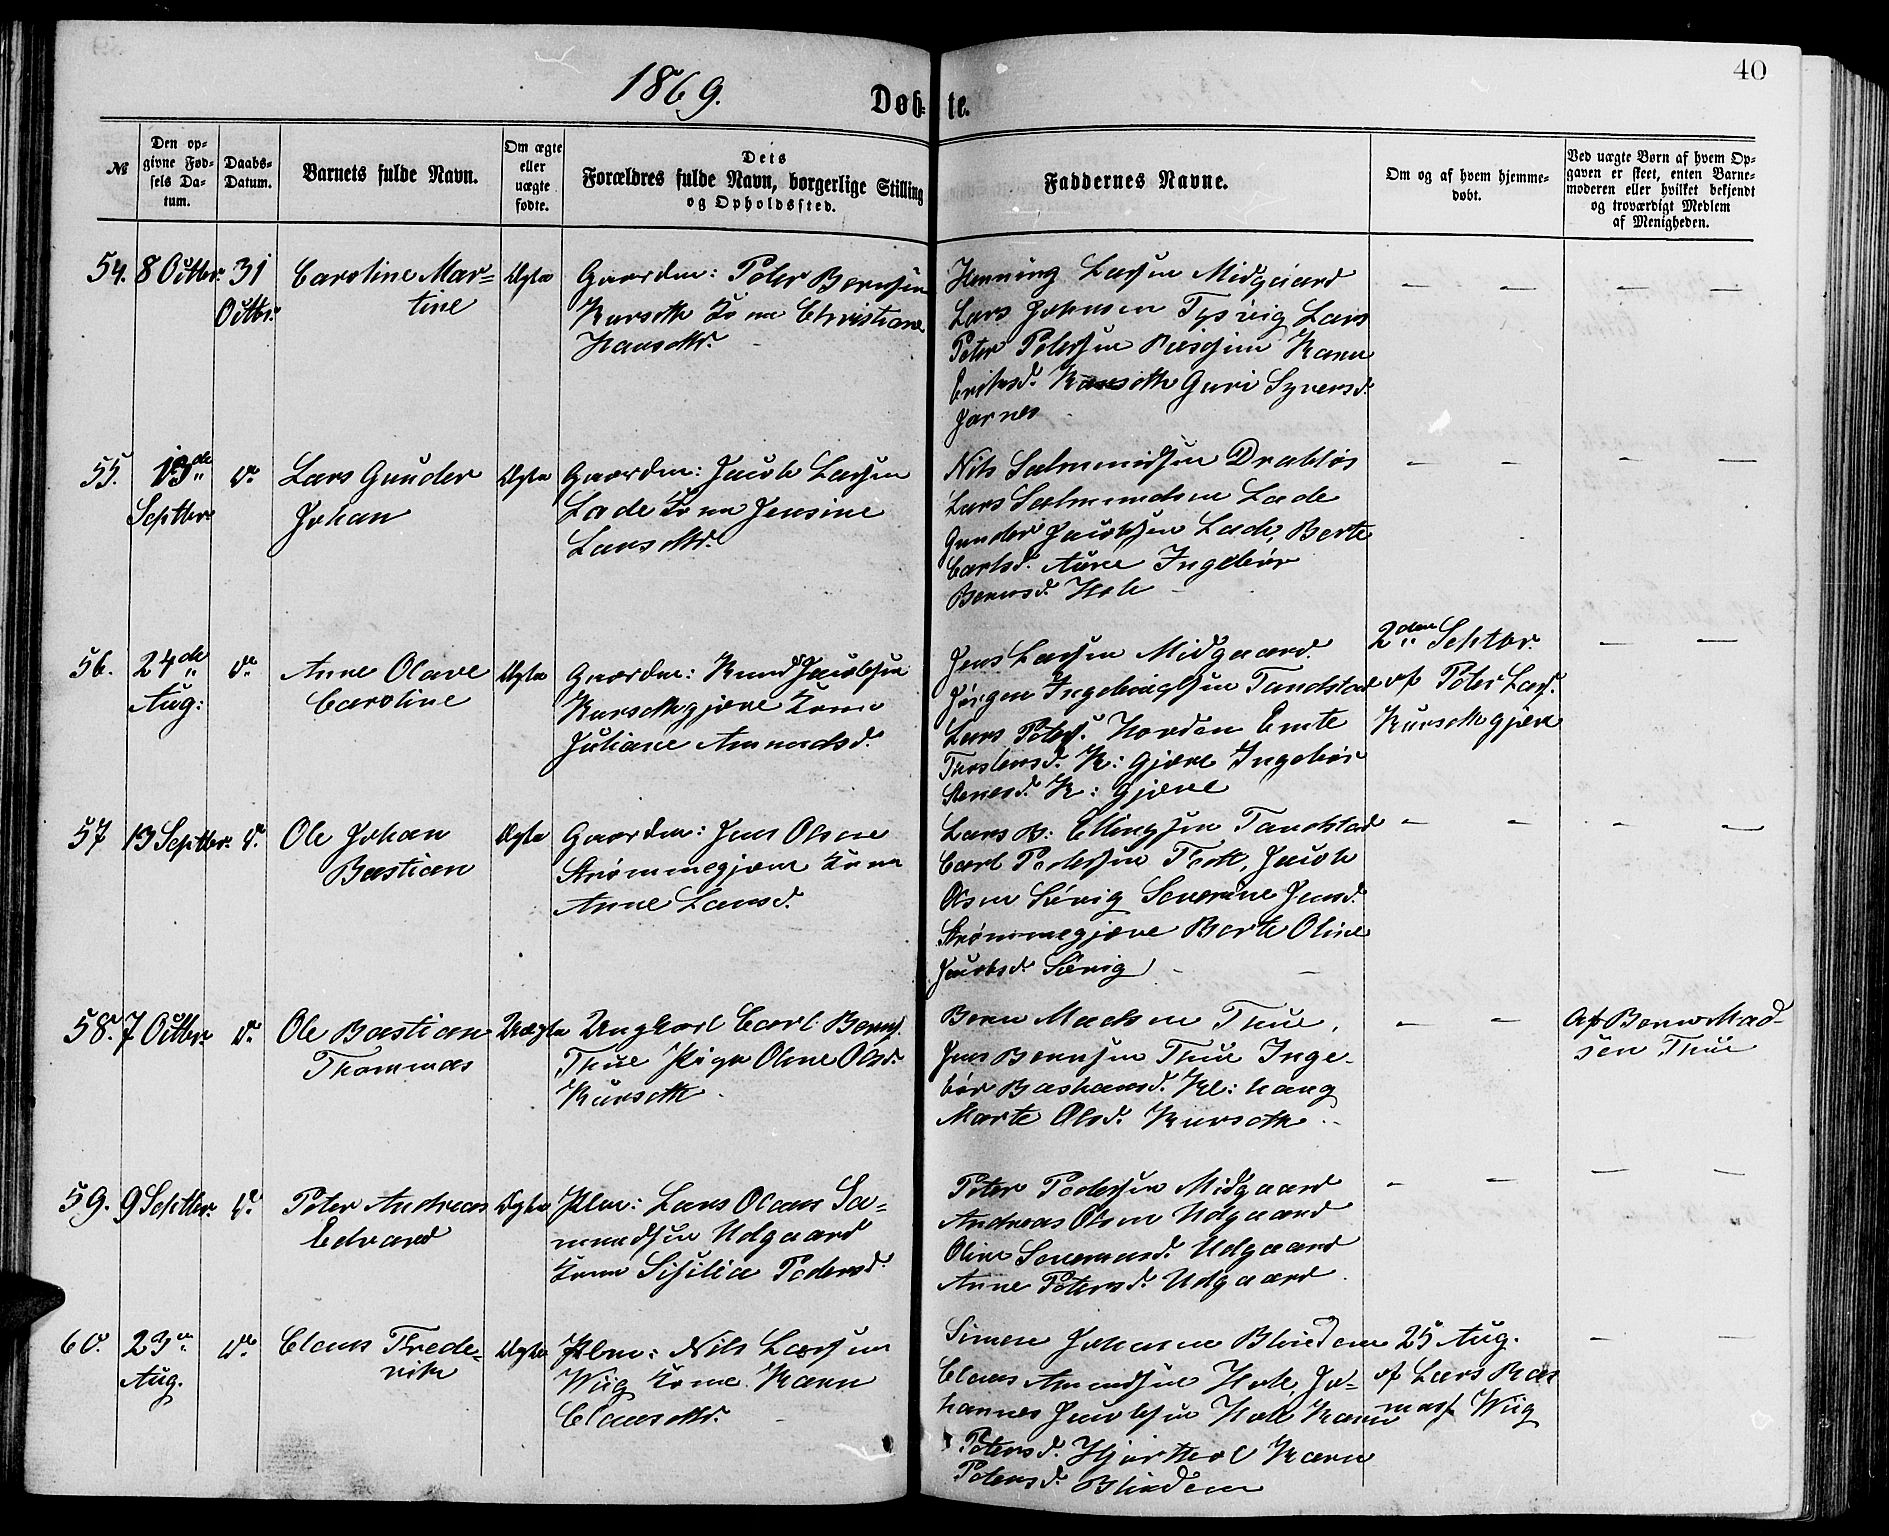 40
1869.
Døbte.
№
Den opgivne Fødsels Datum.
Daabs-Datum.
Barnets fulde Navn.
Om ægte eller uægte fødte.
Dets Forældres fulde Navn, borgerlige Stilling og Opholdssted.
Faddernes Navne.
Om og af hvem hjemmedøbt.
Ved uægte Børn af hvem Opgaven er skeet, enten Barnemoderen eller hvilket bekjendt og troværdigt Medlem af Menigheden.
54. 8 Octbr. 31 Octbr.
Caroline Mar=
tine
Ægte
Gaardm: Peter Berntsen
Kurseth Kone Christiane
Hansdtr.
Henning Larsen Midgaard
Lars Johnsen Tysvig Lars
Peter Petersen Karen
Eriksd. Kurseth Guri Syversd.
Jarnes
55. 13de Septbr. do
Lars Gunder
Johan
Ægte
Gaardm: Jacob Larsen
Lade Kone Jensine
Larsdtr.
Nils Salmundsen Drabløs
Lars Salmundsen Lade
Gunder Jacobsen Lade, Berte
Carlsd. Aure Ingebor
Berntsd. Hole
56. 24de Aug: do
Anne Olave
Caroline
Ægte
Gaardm: Knud Jacobsen
Kursethgjære Kone
Juliane Amundsd.
Jens Larsen Midgaard.
Jørgen Ingebrigtsen Tandstad
Lars Peters. Hovden Emte
Thorstensd. K: gjære Ingebor
Stenesd. K: gjære
2den Septbr.
af Peter Lars.
Kursethgjære
57 13 Septbr. do
Ole Johan
Bastian
Ægte
Gaardm: Jens Olsen
Strømmegjære Kone
Anne Larsd.
Lars B: Ellingsen Tandstad
Carl Pedersen Jacob
Olsen Søvig Severine Jensd.
Strømmegjære Berte Oline
Jacobsd. Søvig
58. 7 Octbr. do
Ole Bastian
Thommas
Uægte
Ungkarl Carl Bernts.
Thue Pige Oline Olsd.
Kurseth
Bern Madsen Thue,
Jens Berntsen Thue Inge-
bør Bastiansd. Kl: haug
Marte Olsd. Kurseth
Af Bernt Mad-
sen Thue
59. 9 Septbr. do
Peter Andreas
Edvard
Ægte
Plm: Lars Olaus Sa=
mundsen Udgaard
Kone Sisilia Pedersd.
Peter Pedersen Midgaard
Andreas Olsen Udgaard
Oline Severinsd. Udgaard
Anne Petersd. Udgaard
60. 23de Aug. do
Claus Frede=
rik
Ægte
Plm: Nils Larsen
Wiig Kone Karen
Clausdtr.
Simen Johnsen Blindem
Claus Amundsen Hole, Jo=
hannes Jacobsen Hole Karen
Petersd. Hjorthol Karen
Petersd. Blindem
25 Aug.
af Lars Ras
mus. Wiig